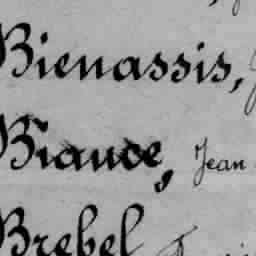 Bienassis,
Biauce, Jean
Brebel